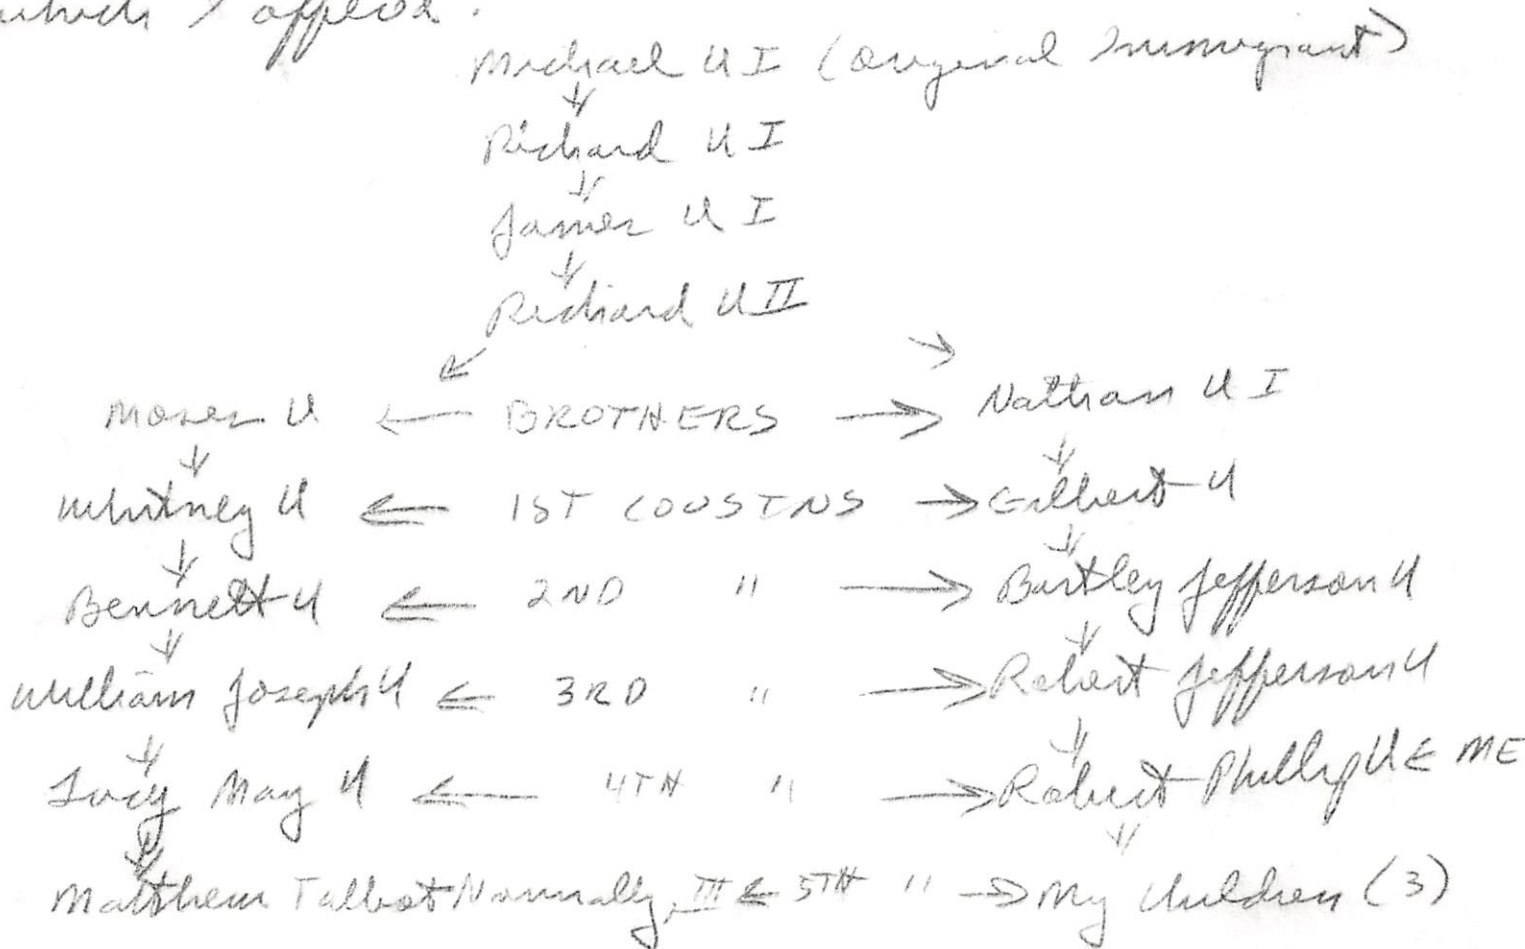 which I
Michael U I (Original Immigrant)
Richard U I
James U I
Richard U II
Moses U BROTHERS Nathan U I
Whitney U 1ST COUSINS Gilbert U
Bennett U 2ND " Bartley Jefferson U
William Joseph U 3RD " Robert Jefferson U
Lucy May U 4TH " Robert Phillip U ME
Matthew Talbot Nunnally, III 5TH " My Children (3)